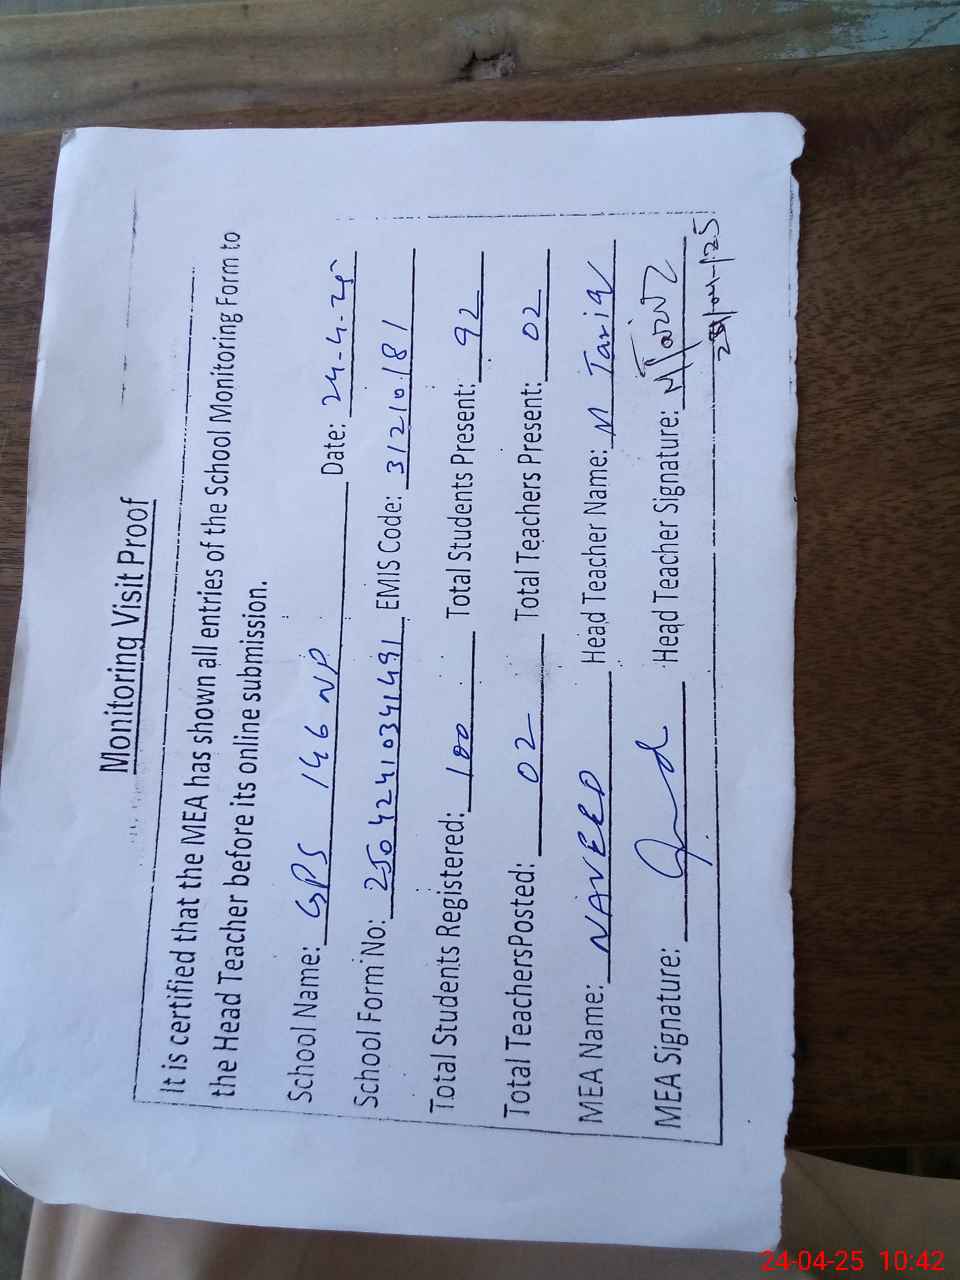 Monitoring Visit Proof
It is certified that the MEA has shown all entries of the School Monitoring Form to
the Head Teacher before its online submission.
School Name: GPS 146 NP Date: 24-4-25
School Form No: 25042410341491 EMIS Code: 31210181
Total Students Registered: 100 Total Students Present: 92
Total TeachersPosted: 02 Total Teachers Present: 02
MEA Name: NAVEED Head Teacher Name: M Tariq
MEA Signature: Head Teacher Signature: M Tariq
24/04/25
24-04-25 10:42